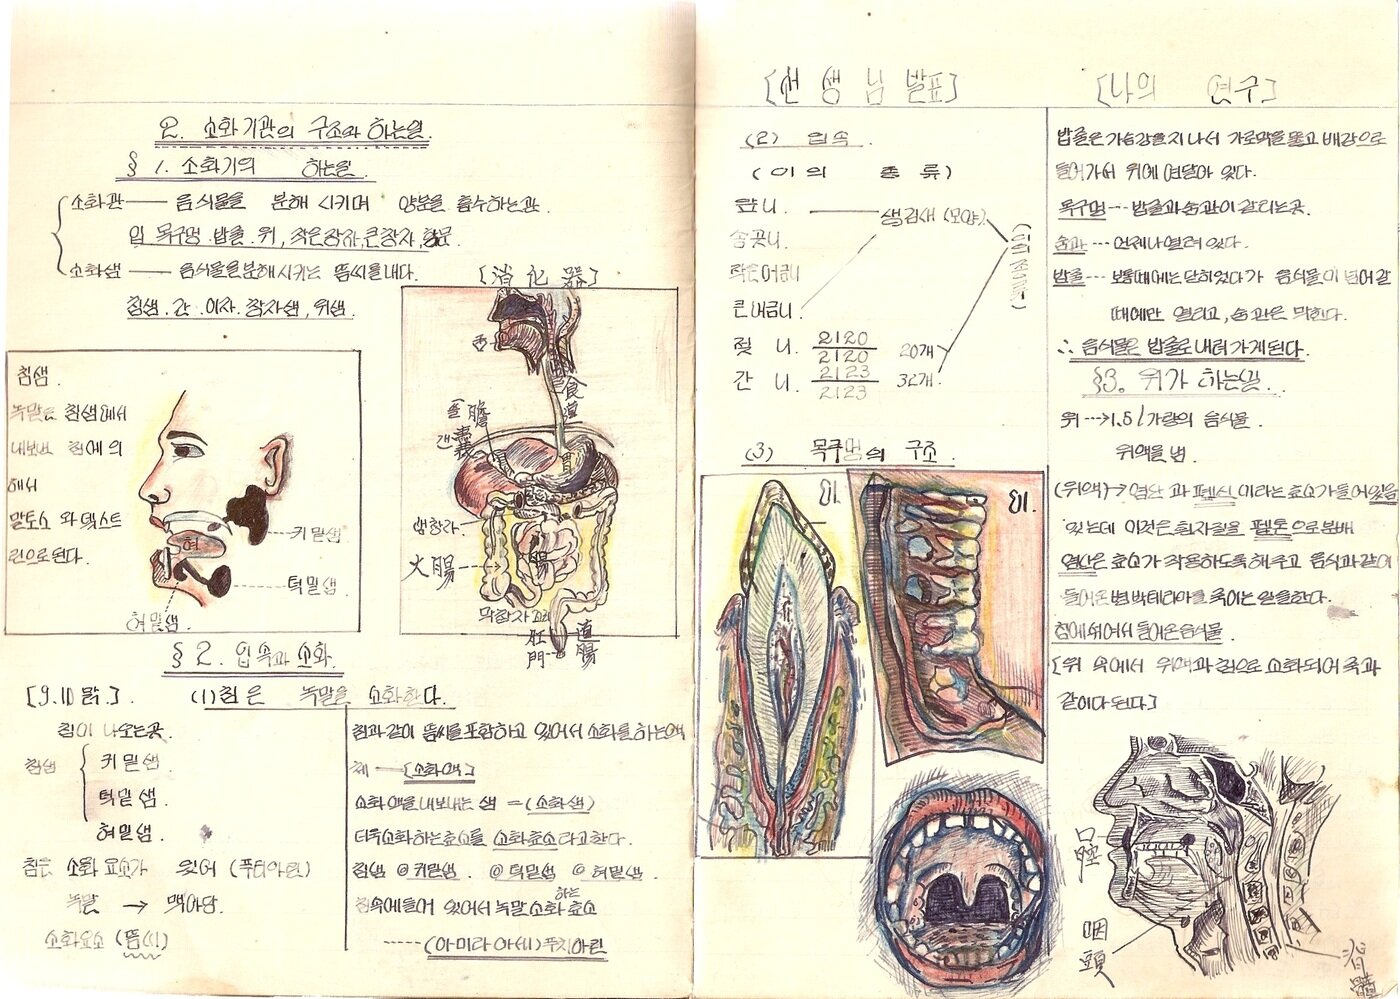 2. 소화기관의 구조와 하는일.
§ 1. 소화기의 하는일.
소화관 —— 음식물을 분해 시키며 양분을 흡수하는관.
입 목구멍 밥줄 위, 작은창자, 큰창자, 항문.
소화샘 —— 음식물을 분해시키는 뜸씨를 내다.
침샘. 간. 이자. 창자샘, 위샘.
[消 化 器]
침샘.
녹말은 침샘에서
내보낸 침에 의
해서
말토스 와 덱스트
린으로 된다.
혀
귀밑샘
턱밑샘
혀밑샘.
食道
膽囊
胃
샘창자.
大腸
腸
막창자 꼬리
肛門
直腸
§ 2. 입속과 소화.
[9.10 맑.]. (1) 침은 녹말을 소화한다.
침이 나오는곳.
침샘
귀밑샘
턱밑샘.
혀밑샘.
침은 소화 요소가 있어 (푸티아린)
녹말 → 맥아당.
소화요소 (뜸씨)
침과 같이 뜸씨를 포함하고 있어서 소화를 하는액
체 —— [소화액]
소화액을 내보내는 샘 = (소화샘)
더욱 소화하는 효소를 소화효소라고 한다.
침샘 ◎ 귀밑샘. ◎ 턱밑샘 ◎ 혀밑샘.
침속에 들어 있어서 녹말 소화하는 효소
...... (아미라아세) 푸치아린
[선 생 님 발표]
(2) 입속.
(이의 종류)
앞니.
송곳니.
작은어금니
큰어금니.
생김새 (모양)
젖 니. 2120/2120 20개
간 니. 2123/2123 32개.
(3) 목구멍의 구조.
이.
이.
[나의 연구]
밥줄은 가슴강을 지나서 가로막을 뚫고 배강으로
들어가서 위에 연달아 있다.
목구멍 --- 밥줄과 숨관이 갈리는곳.
숨관 --- 언제나 열려 있다.
밥줄 --- 보통때에는 닫히었다가 음식물이 넘어갈
때에만 열리고, 숨관은 막힌다.
∴ 음식물은 밥줄로 내려 가게된다.
§3. 위가 하는일.
위 ---> 1.5 l 가량의 음식물
위액을 냄.
(위액) → 염산 과 펩신 이라는 효소가 들어있을
있는데 이것은 흰자질을 펩톤으로 분해
염산은 효소가 작용하도록 해주고 음식과 같이
들어온 병 박테리아를 죽이는 일을한다.
침에 섞어서 들어온 음식물.
[위 속에서 위액과 침으로 소화되어 죽과
같이 다된다]
口腔
咽頭
脊髓